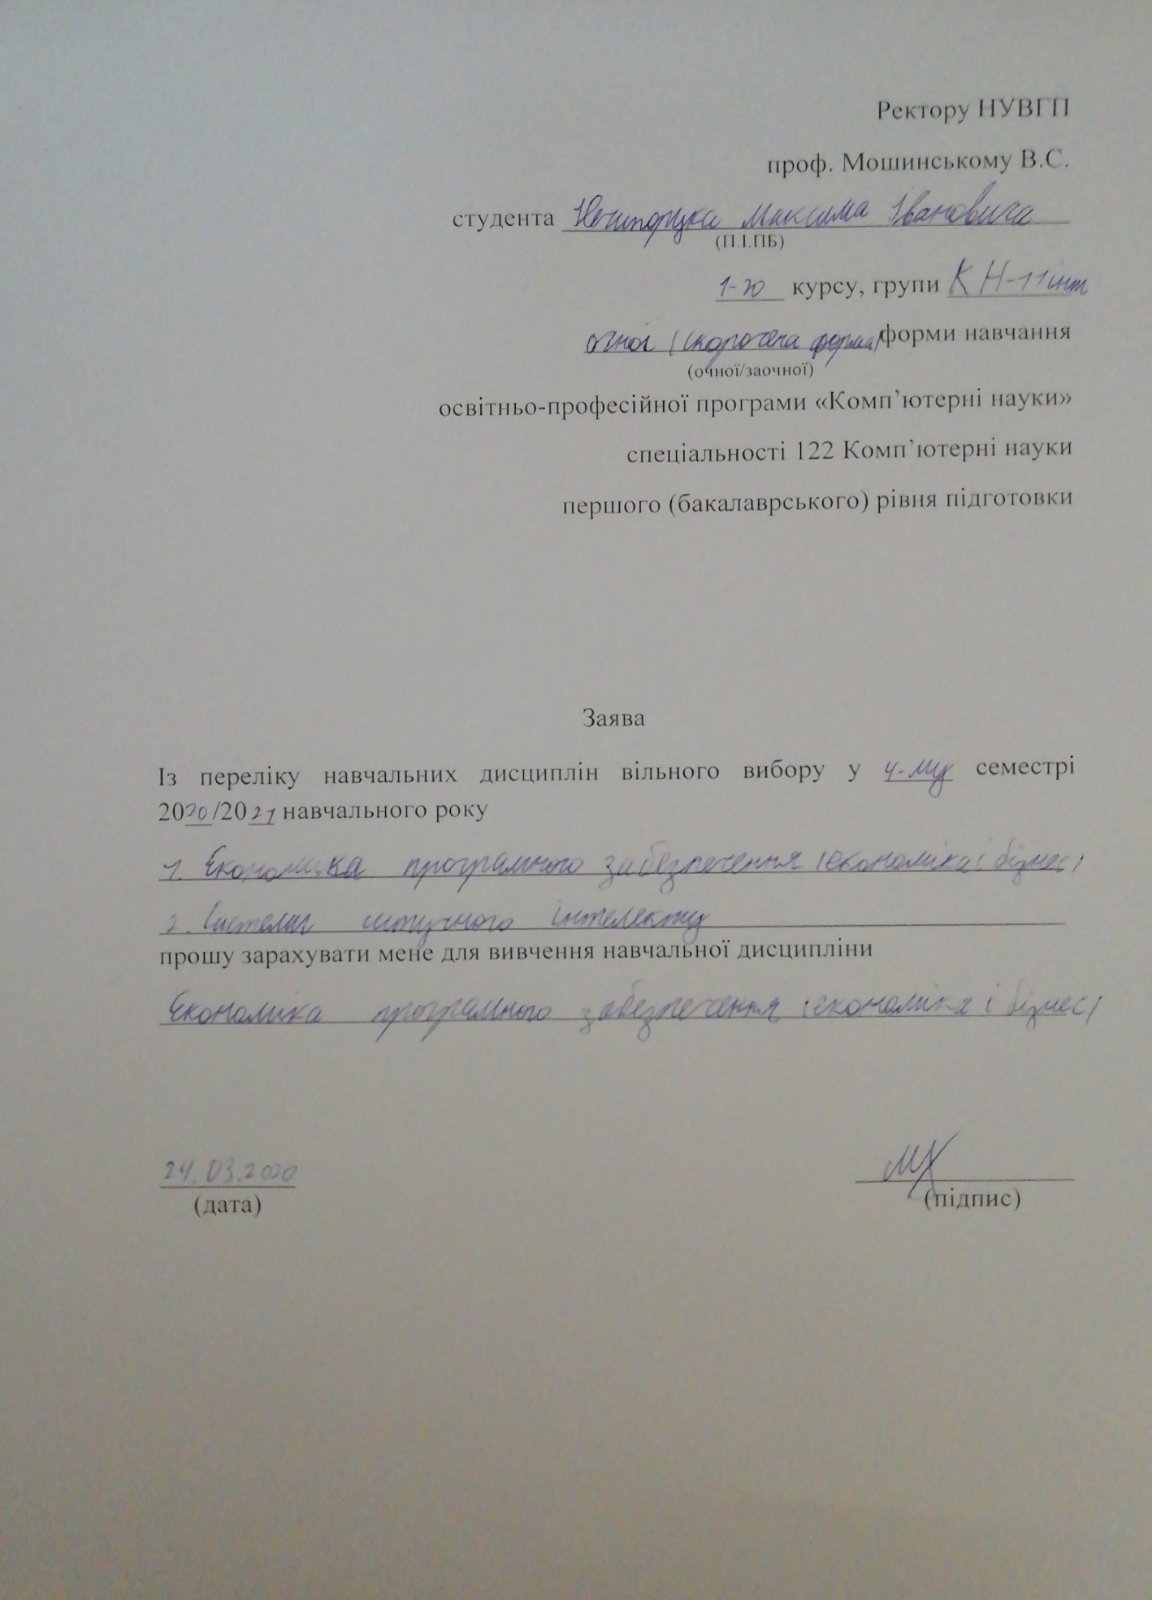 Ректору НУВГП
проф. Мошинському В.С.
студента Максима Івановича
(П.І.ПБ)
1-го курсу, групи КН-11інт
очної (скорочена форма) форми навчання
(очної/заочної)
освітньо-професійної програми «Комп’ютерні науки»
спеціальності 122 Комп’ютерні науки
першого (бакалаврського) рівня підготовки
Заява
Із переліку навчальних дисциплін вільного вибору у 4-му семестрі
2020/2021 навчального року
1. Економіка програмного забезпечення (економіка і бізнес)
2. Системи штучного інтелекту
прошу зарахувати мене для вивчення навчальної дисципліни
Економіка програмного забезпечення (економіка і бізнес)
24.03.2020
(дата) (підпис)